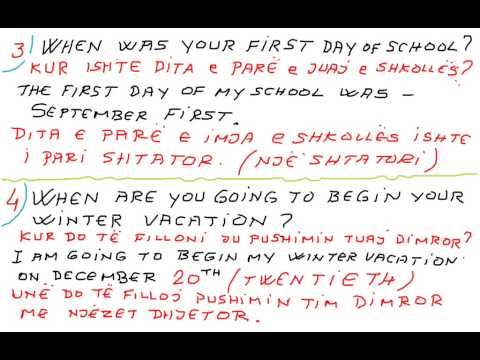 3) WHEN WAS YOUR FIRST DAY OF SCHOOL?
KUR ISHTE DITA E PARË E JUAJ E SHKOLLËS?
THE FIRST DAY OF MY SCHOOL WAS –
SEPTEMBER FIRST.
DITA E PARË E IMJA E SHKOLLËS ISHTE
I PARI SHTATOR. (NJË SHTATORI)
4) WHEN ARE YOU GOING TO BEGIN YOUR
WINTER VACATION?
KUR DO TË FILLONI JU PUSHIMIN TUAJ DIMROR?
I AM GOING TO BEGIN MY WINTER VACATION
ON DECEMBER 20TH (TWENTIETH)
UNË DO TË FILLOJ PUSHIMIN TIM DIMROR
ME NJËZET DHJETOR.